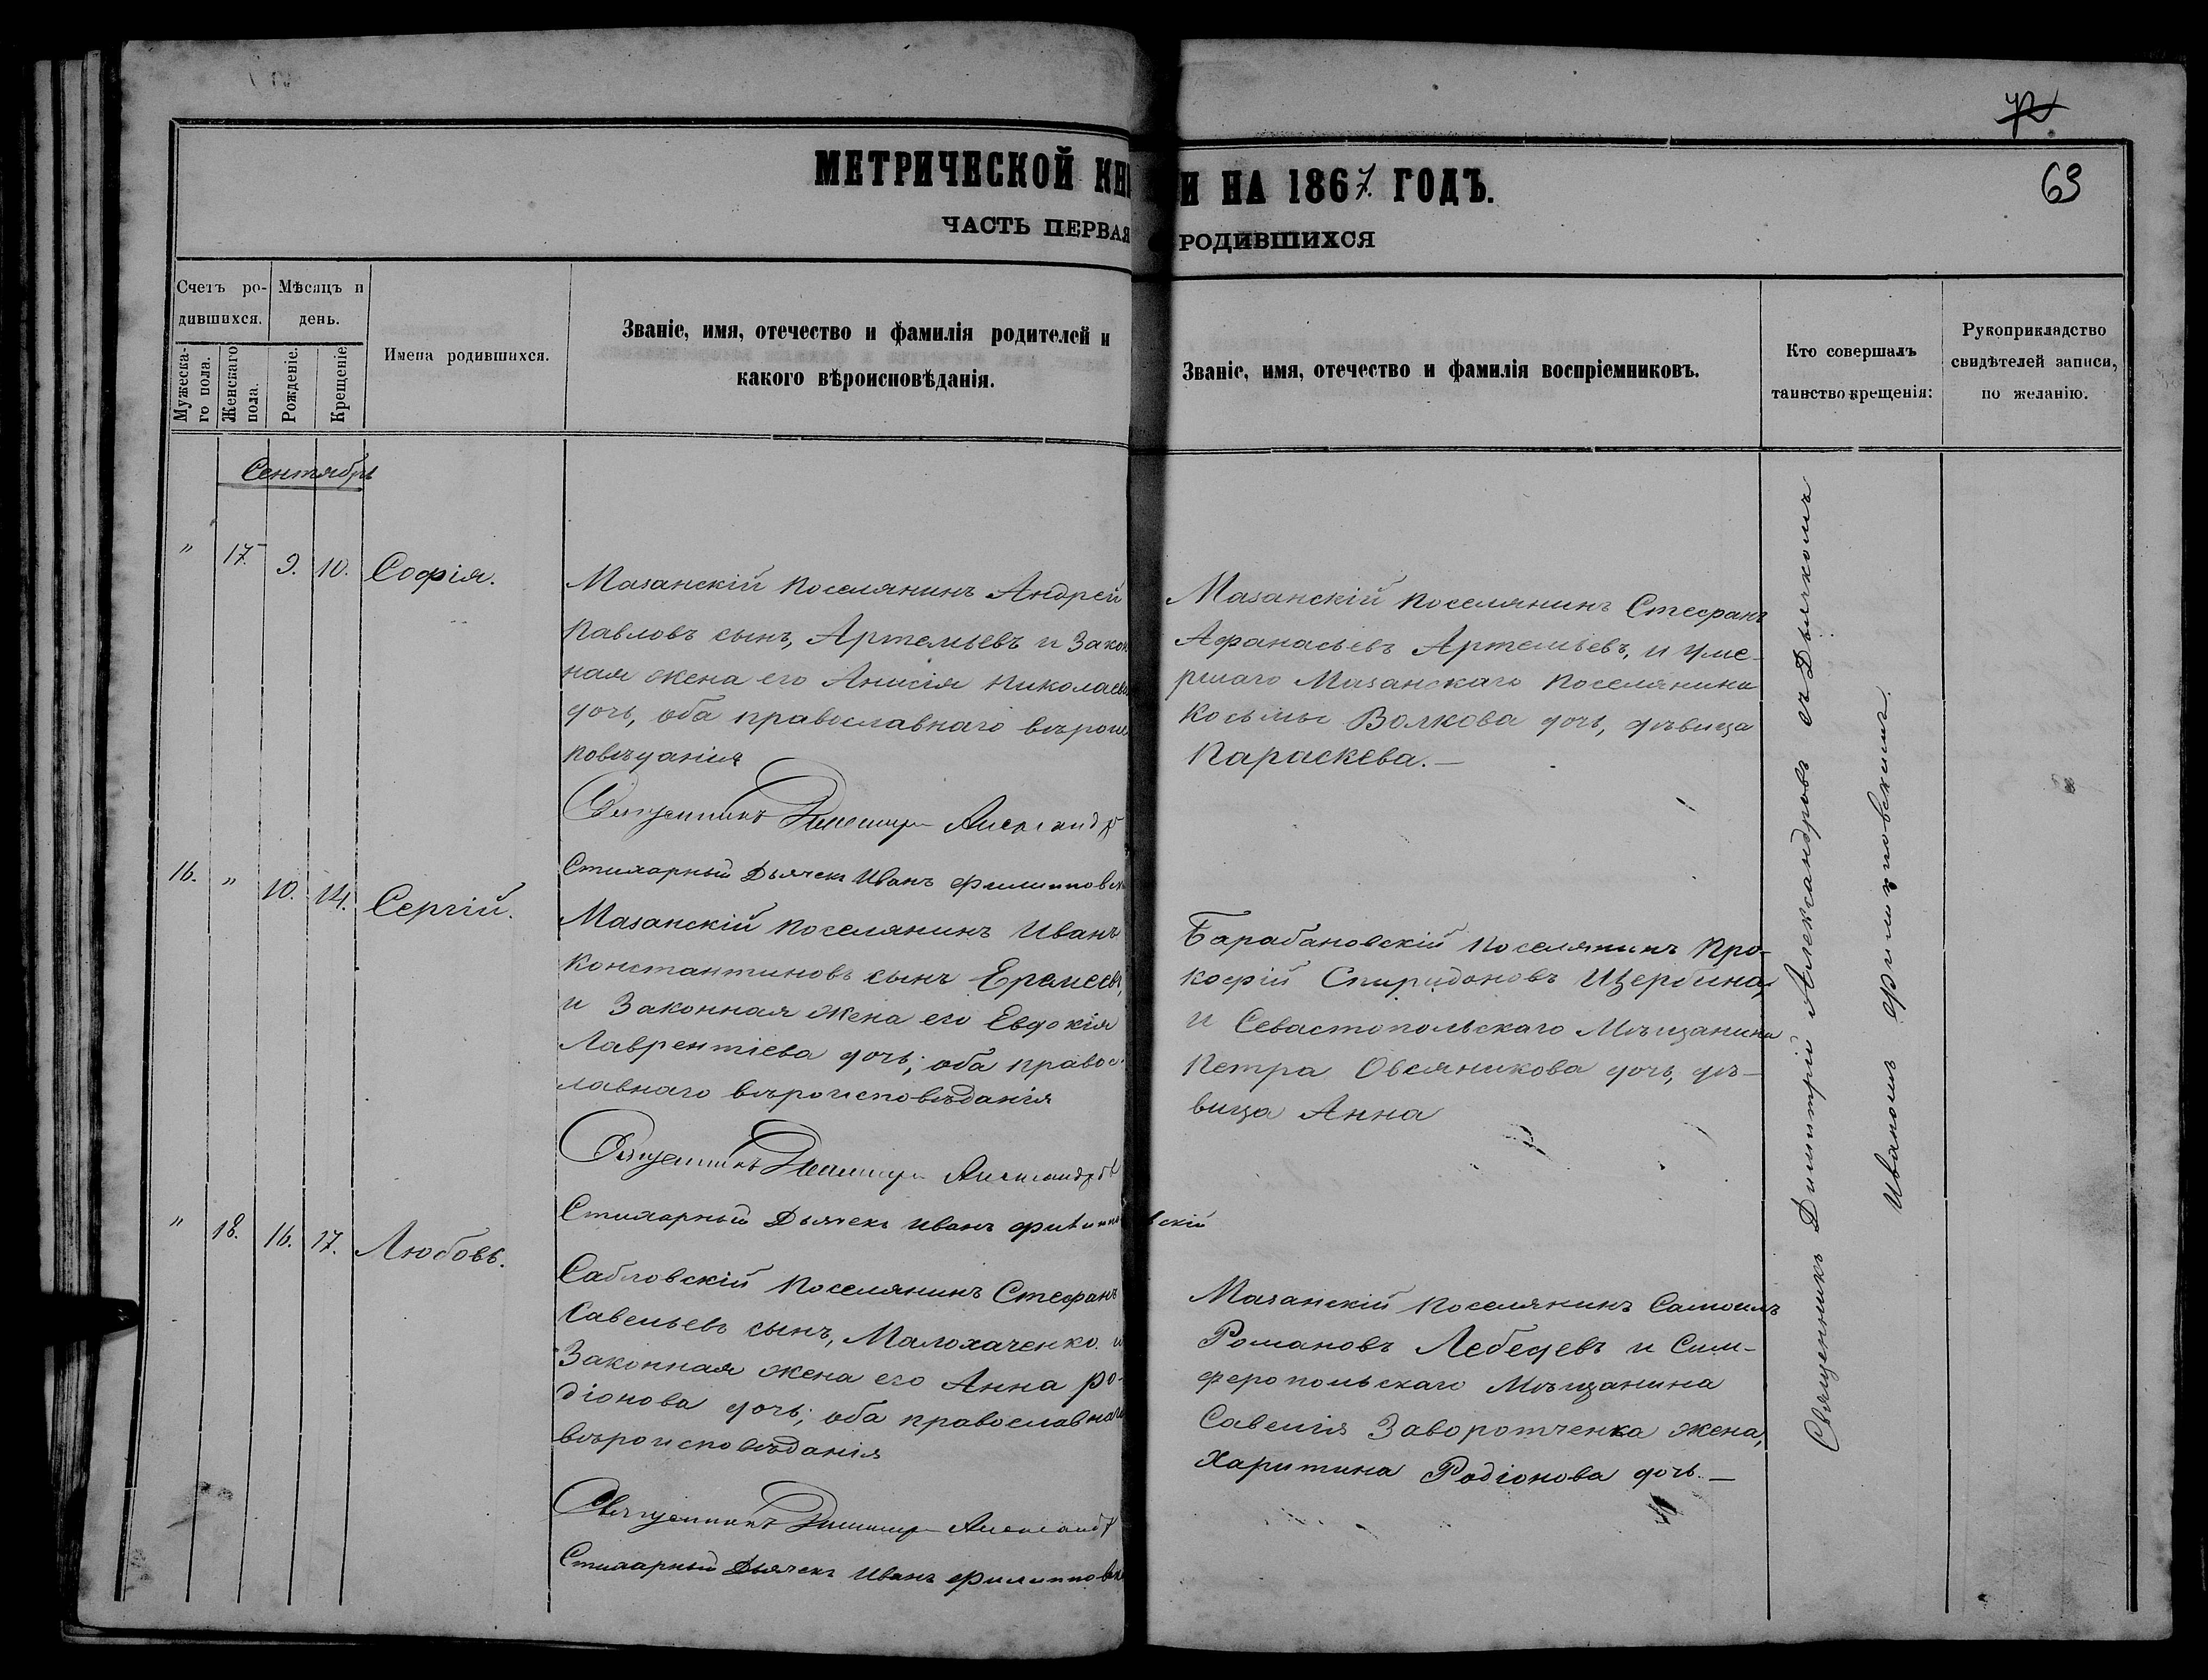 72
63
МЕТРИЧЕСКОЙ КНИ
И НА 1867. ГОДЪ.
ЧАСТЬ ПЕРВАЯ
РОДИВШИХСЯ
Счетъ ро-
дившихся.
Мѣсяцъ и
день.
Мужеска-
го пола.
Женскаго
пола.
Рожденіе.
Крещеніе
Имена родившихся.
Званіе, имя, отечество и фамилія родителей и
какого вѣроисповѣданія.
Званіе, имя, отечество и фамилія воспріемниковъ.
Кто совершалъ
таинство крещенія:
Рукоприкладство
свидѣтелей записи,
по желанію.
Сентябрь
" 17. 9. 10. Софія.
Мазанскій поселянинъ Андрей
Павловъ сынъ, Артемьевъ и Закон
ная жена его Анисія Николаева
дочь, оба православнаго вѣроис
повѣданія
Священникъ Димитрій Александр
Стихарный Дьячекъ Иванъ Филипповск
Мазанскій поселянинъ Стефанъ
Афанасьевъ Артемьевъ, и уме-
ршаго Мазанскаго поселянина
Косьмы Волкова дочь, дѣвица
Параскева.—
16. " 10. 14. Сергій.
Мазанскій поселянинъ Иванъ
Константиновъ сынъ Еремеевъ,
и Законная жена его Евдокія
Лаврентіева дочь; оба правос-
лавнаго вѣроисповѣданія
Священникъ Димитрій Александров
Стихарный Дьячекъ Иванъ Филипповскій
Барабановскій поселянинъ Про-
кофій Спиридоновъ Щербина,
и Севастопольскаго Мѣщанина
Петра Овсяникова дочь, дѣ-
вица Анна
" 18. 16. 17. Любовь.
Сабловскій поселянинъ Стефанъ
Савельевъ сынъ, Малохаченко и
Законная жена его Анна Ро-
діонова дочь; оба православнаго
вѣроисповѣданія
Священникъ Димитрій Александр
Стихарный Дьячекъ Иванъ Филипповск
Мазанскій поселянинъ Самоилъ
Романовъ Лебедевъ и Сим-
феропольскаго Мѣщанина
Савелія Заворотченка жена,
Харитина Родіонова дочь.—
Священникъ Димитрій Александровъ съ Дьячкомъ
Иваномъ Филипповскимъ.